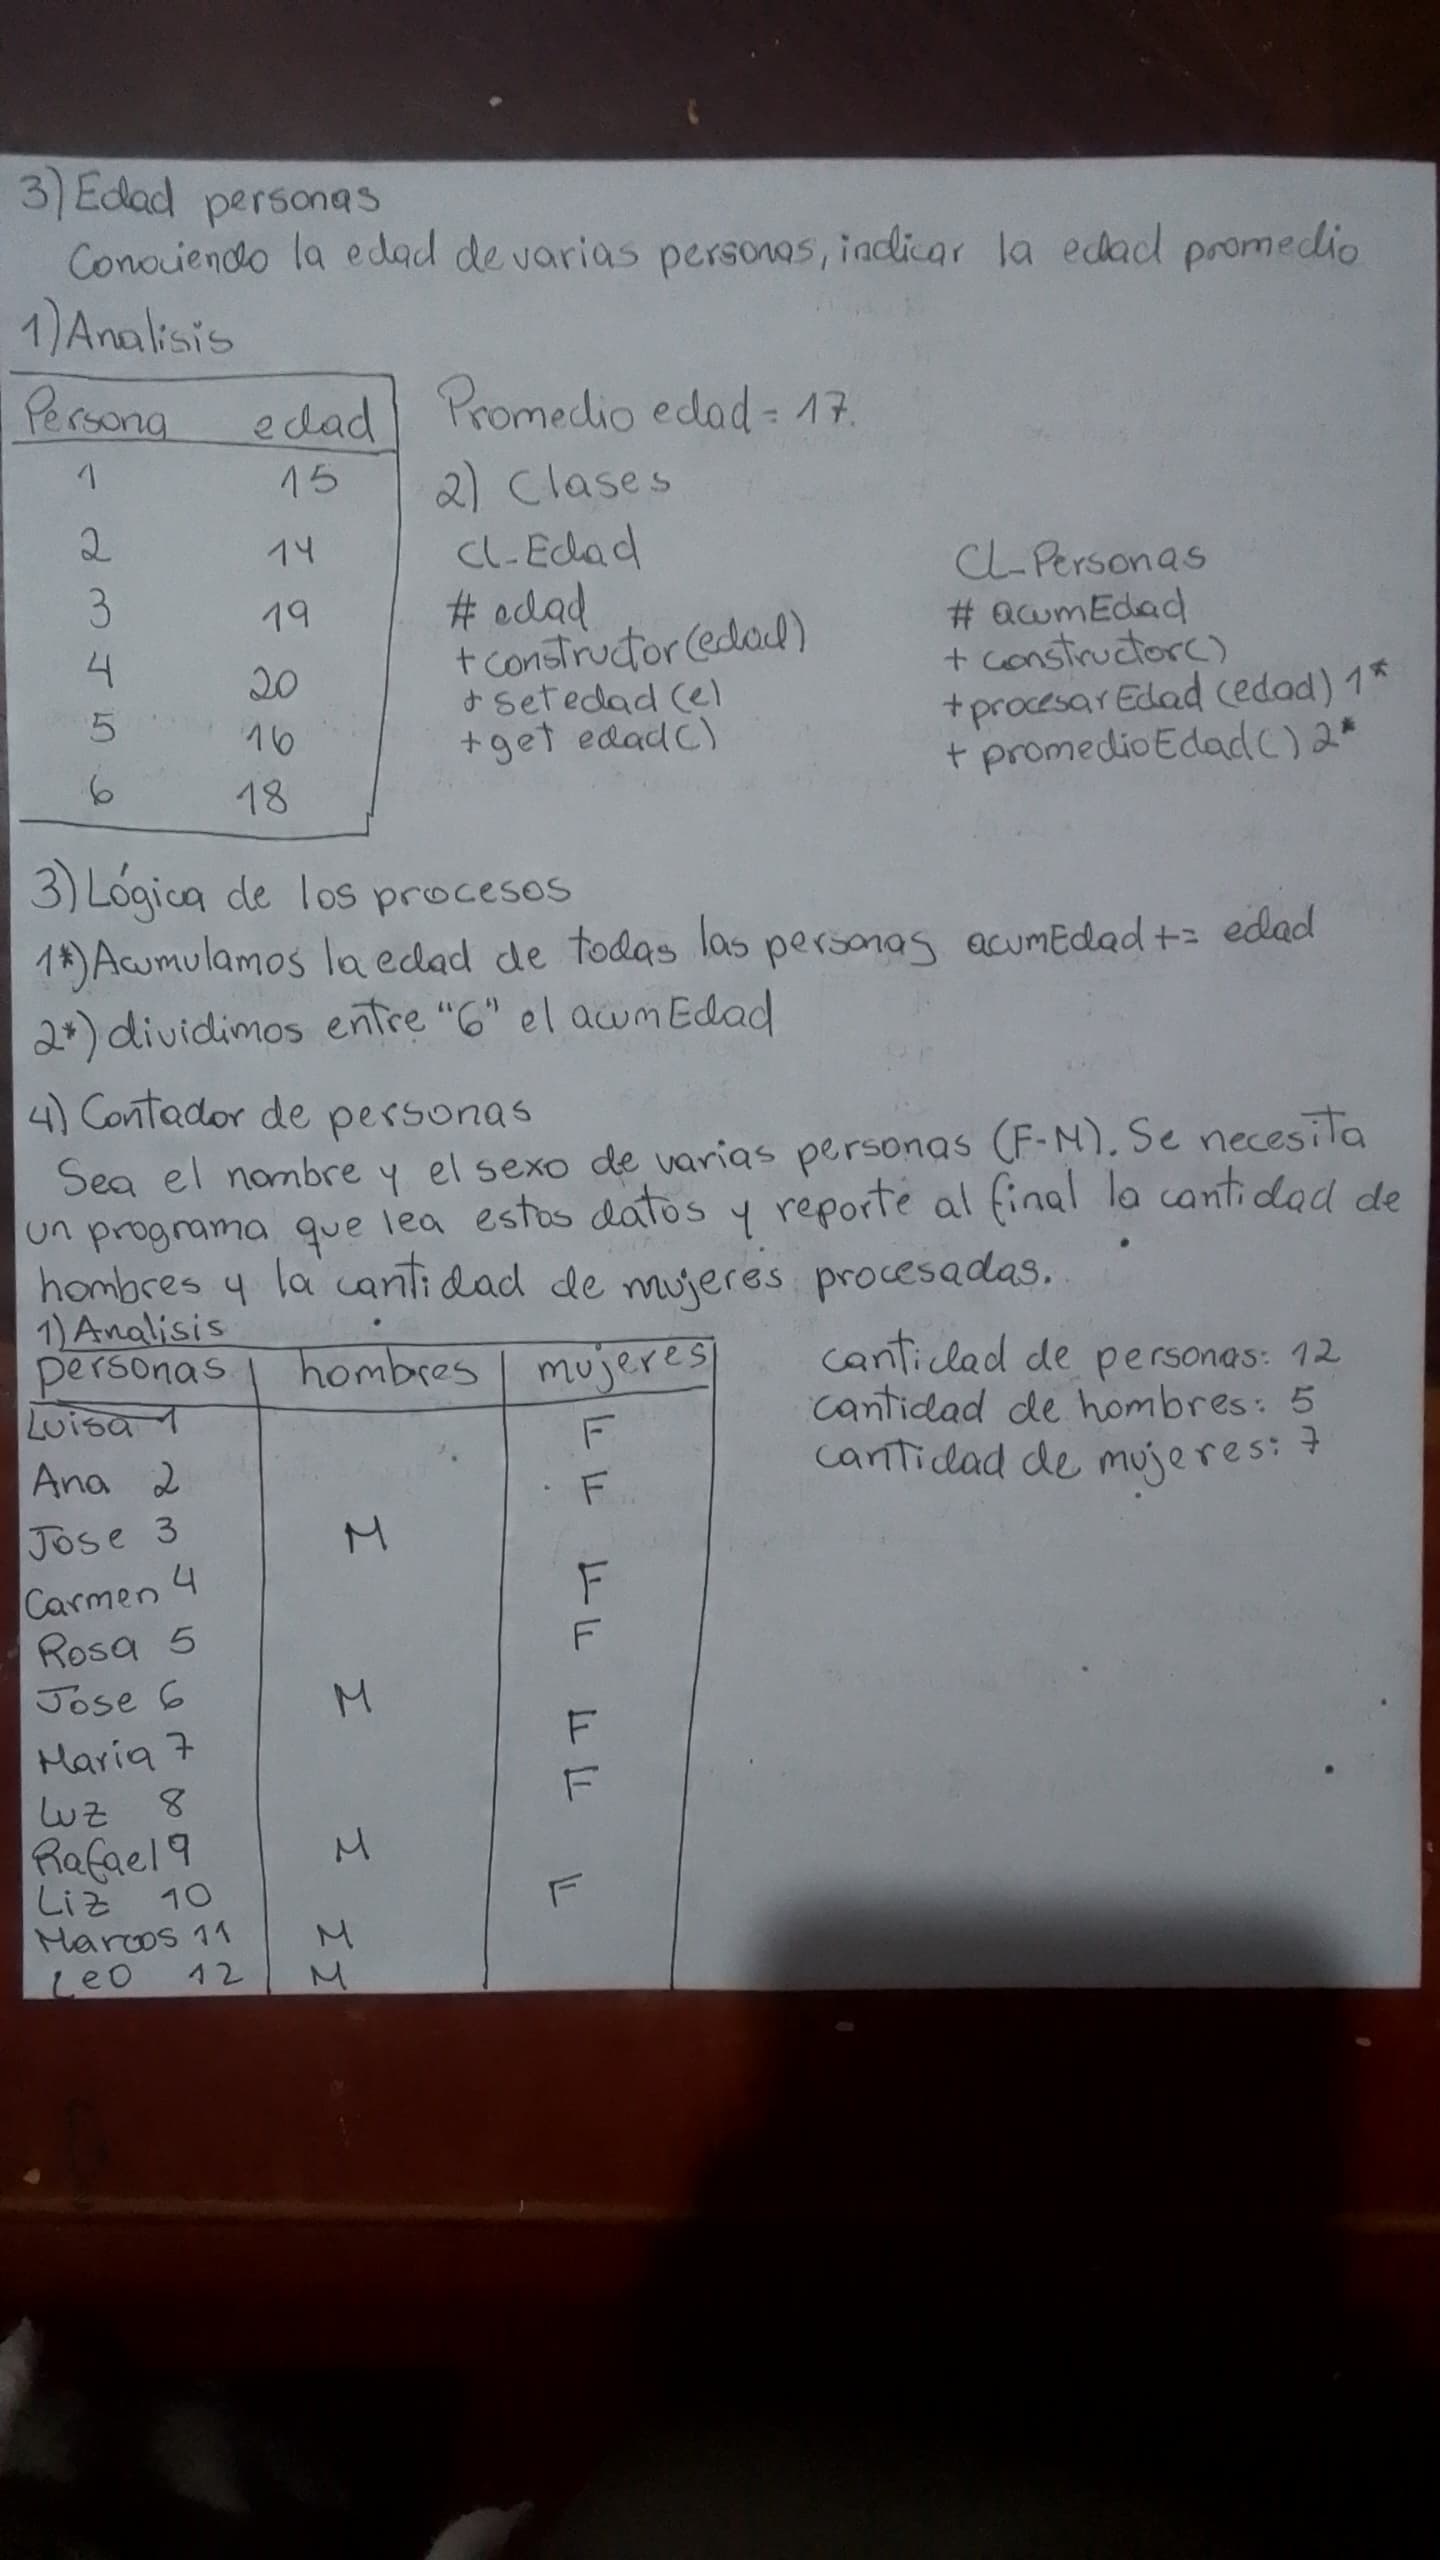 3) Edad personas
Conociendo la edad de varias personas, indicar la edad promedio
1) Analisis
Persona edad
1 15
2 14
3 19
4 20
5 16
6 18
Promedio edad = 17.
2) Clases
Cl_Edad
# edad
+ constructor (edad)
+ set edad (e)
+ get edad ( )
CL_Personas
# acumEdad
+ constructor( )
+ procesarEdad (edad) 1*
+ promedioEdad ( ) 2*
3) Lógica de los procesos
1*) Acumulamos la edad de todas las personas acumEdad += edad
2*) dividimos entre "6" el acumEdad
4) Contador de personas
Sea el nombre y el sexo de varias personas (F-M). Se necesita
un programa que lea estos datos y reporte al final la cantidad de
hombres y la cantidad de mujeres procesadas.
1) Analisis
personas hombres mujeres
Luisa 1 F
Ana 2 F
Jose 3 M
Carmen 4 F
Rosa 5 F
Jose 6 M
Maria 7 F
Luz 8 F
Rafael 9 M
Liz 10 F
Marcos 11 M
Leo 12 M
cantidad de personas: 12
cantidad de hombres: 5
cantidad de mujeres: 7